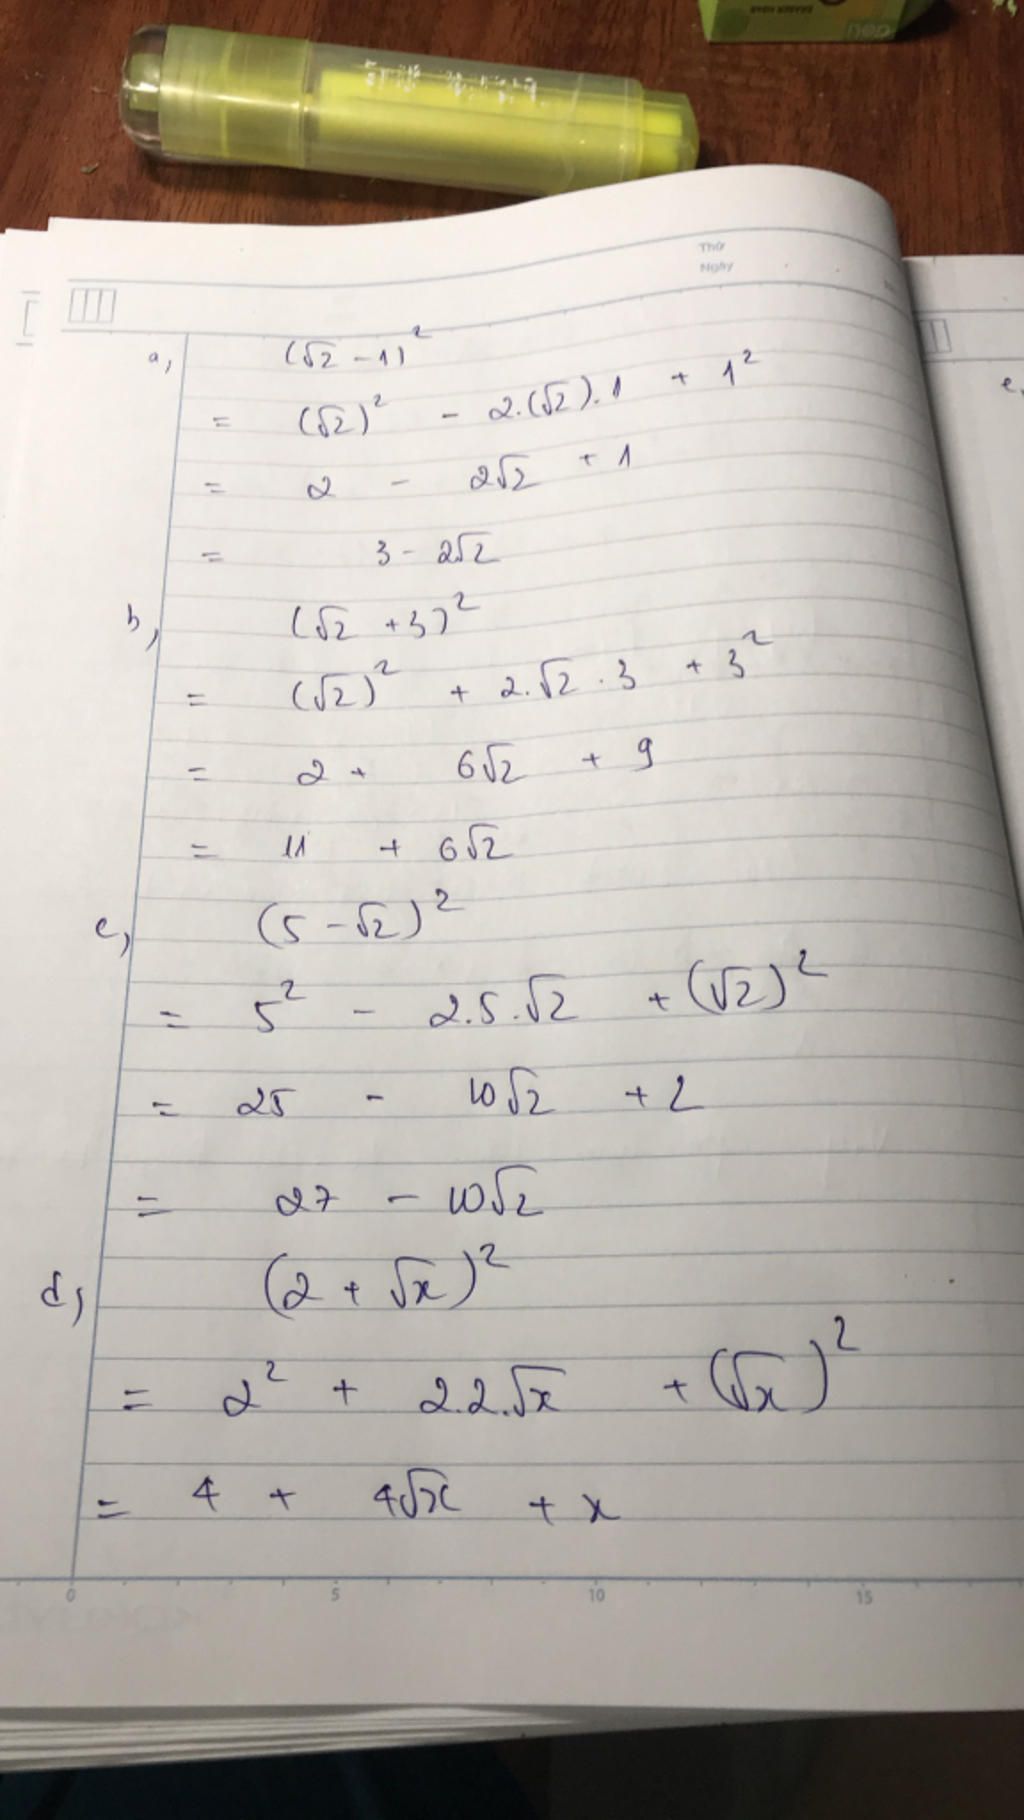 Thứ
Ngày
a, (√2 - 1)²
= (√2)² - 2.(√2).1 + 1²
= 2 - 2√2 + 1
= 3 - 2√2
b, (√2 + 3)²
= (√2)² + 2.√2.3 + 3²
= 2 + 6√2 + 9
= 11 + 6√2
c, (5 - √2)²
= 5² - 2.5.√2 + (√2)²
= 25 - 10√2 + 2
= 27 - 10√2
d, (2 + √x)²
= 2² + 2.2.√x + (√x)²
= 4 + 4√x + x
0 5 10 15
e,